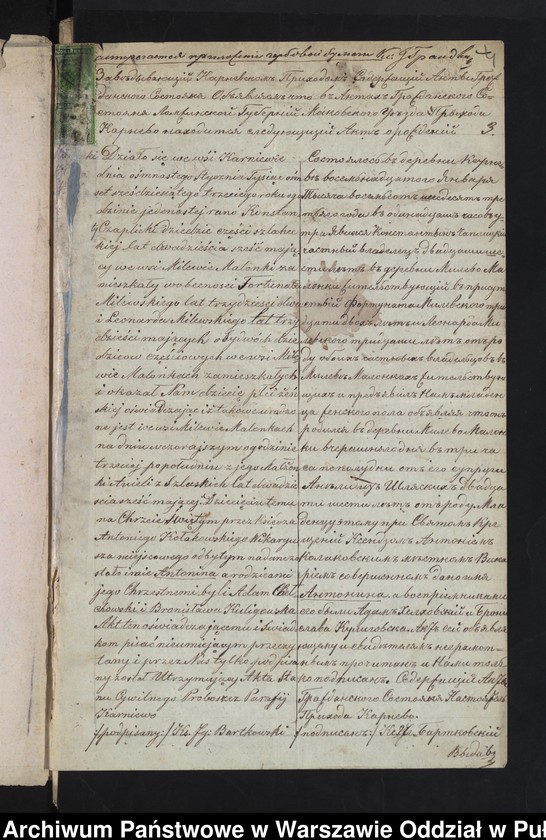 Заведывающій Карневскимъ Приходомъ Содержащій Акты Граж
данскаго Состоянія Объявляетъ что въ Актахъ Гражданскаго Со
стоянія Ломжинской Губерніи Маковскаго Уѣзда Прихода
Карнево находится слѣдующій Актъ
3.
Działo się we wsi Karniewie
dnia osmnastego Stycznia Tysiąc ośm
set sześćdziesiątego trzeciego roku o go
dzinie jedenastej rano Konstan
ty Czaplicki dziedzic części szlachec
kiej lat dwadzieścia sześć mają
cy we wsi Milewie Malonki za
mieszkały w obecności Fortunata
Milewskiego lat trzydzieści dwa
i Leonarda Milewskiego lat trzy
dzieści mających obydwóch dzie
dziców częściowych we wsi Mile
wie Malonkach zamieszkałych
i okazał Nam dziecię płci żeń
skiej oświadczając iż takowe urodzo
ne jest we wsi Milewie Malonkach
na dniu wczorajszym o godzinie
trzeciej popołudniu z jego Małżon
ki Anieli z Szluskich lat dwadzie
ścia sześć mającej. Dziecięciu temu
na Chrzcie Świętym przez Księdza
Antoniego Kołakowskiego Wikaryu
sza miejscowego odbytym nadane zo
stało imie Antonina a rodzicami
jego Chrzestnemi byli Adam Cheł
chowski i Bronisława Kieligowska
Akt ten oświadczającemu i Świad
kom pisać nieumiejącym przeczy
tany i przez Nas tylko podpisa
ny został Utrzymujący Akta Sta
nu Cywilnego Proboszcz Parafij
Karniewo
/podpisany:/ Ks. Jg: Bartkowski
Состоялось въ деревни Карне
въ восемнадцатаго Января
Тысяча восемьсотъ шестдесятъ тре
тьяго года въ одинадцать часовъ у
тра Явился Константинъ Чаплицкій
частный владѣлецъ двадцати ше
сти лѣтъ въ деревни Милево Ма
лонки жительствующій въ присут
ствіи Фортуната Милевскаго три
дцати двухъ лѣтъ и Леонарда Ми
левскаго тридцати лѣтъ отъ ро
ду обоихъ частныхъ владѣльцовъ въ
Милевѣ Малонкахъ жительствую
щихъ и предъявилъ Намъ младен
ца женскаго пола объявляя что онъ
родился въ деревни Милево Малон
ки вчерашняго дня въ три ча
са пополудни отъ его супруги
Анелии изъ Шлюскихъ двадца
ти шести лѣтъ отъ роду. Мла
денцу этому при Святомъ Кре
щеніи Ксендзомъ Антоніемъ
Колаковскимъ мѣстнымъ Вика
ріемъ совершенномъ дано имя
Антонина, а воспріемниками
его были Адамъ Хелховскій и Брони
слава Келиговска. Актъ сей объявля
ющему и свидѣтелямъ неграмот
нымъ прочитанъ и Нами толь
ко подписанъ. Содержащій Акты
Гражданскаго Состоянія Настоятель
Прихода Карнево.
/подписанъ:/ Кс. Бартковскій
Archiwum Państwowe w Warszawie Oddział w Puł